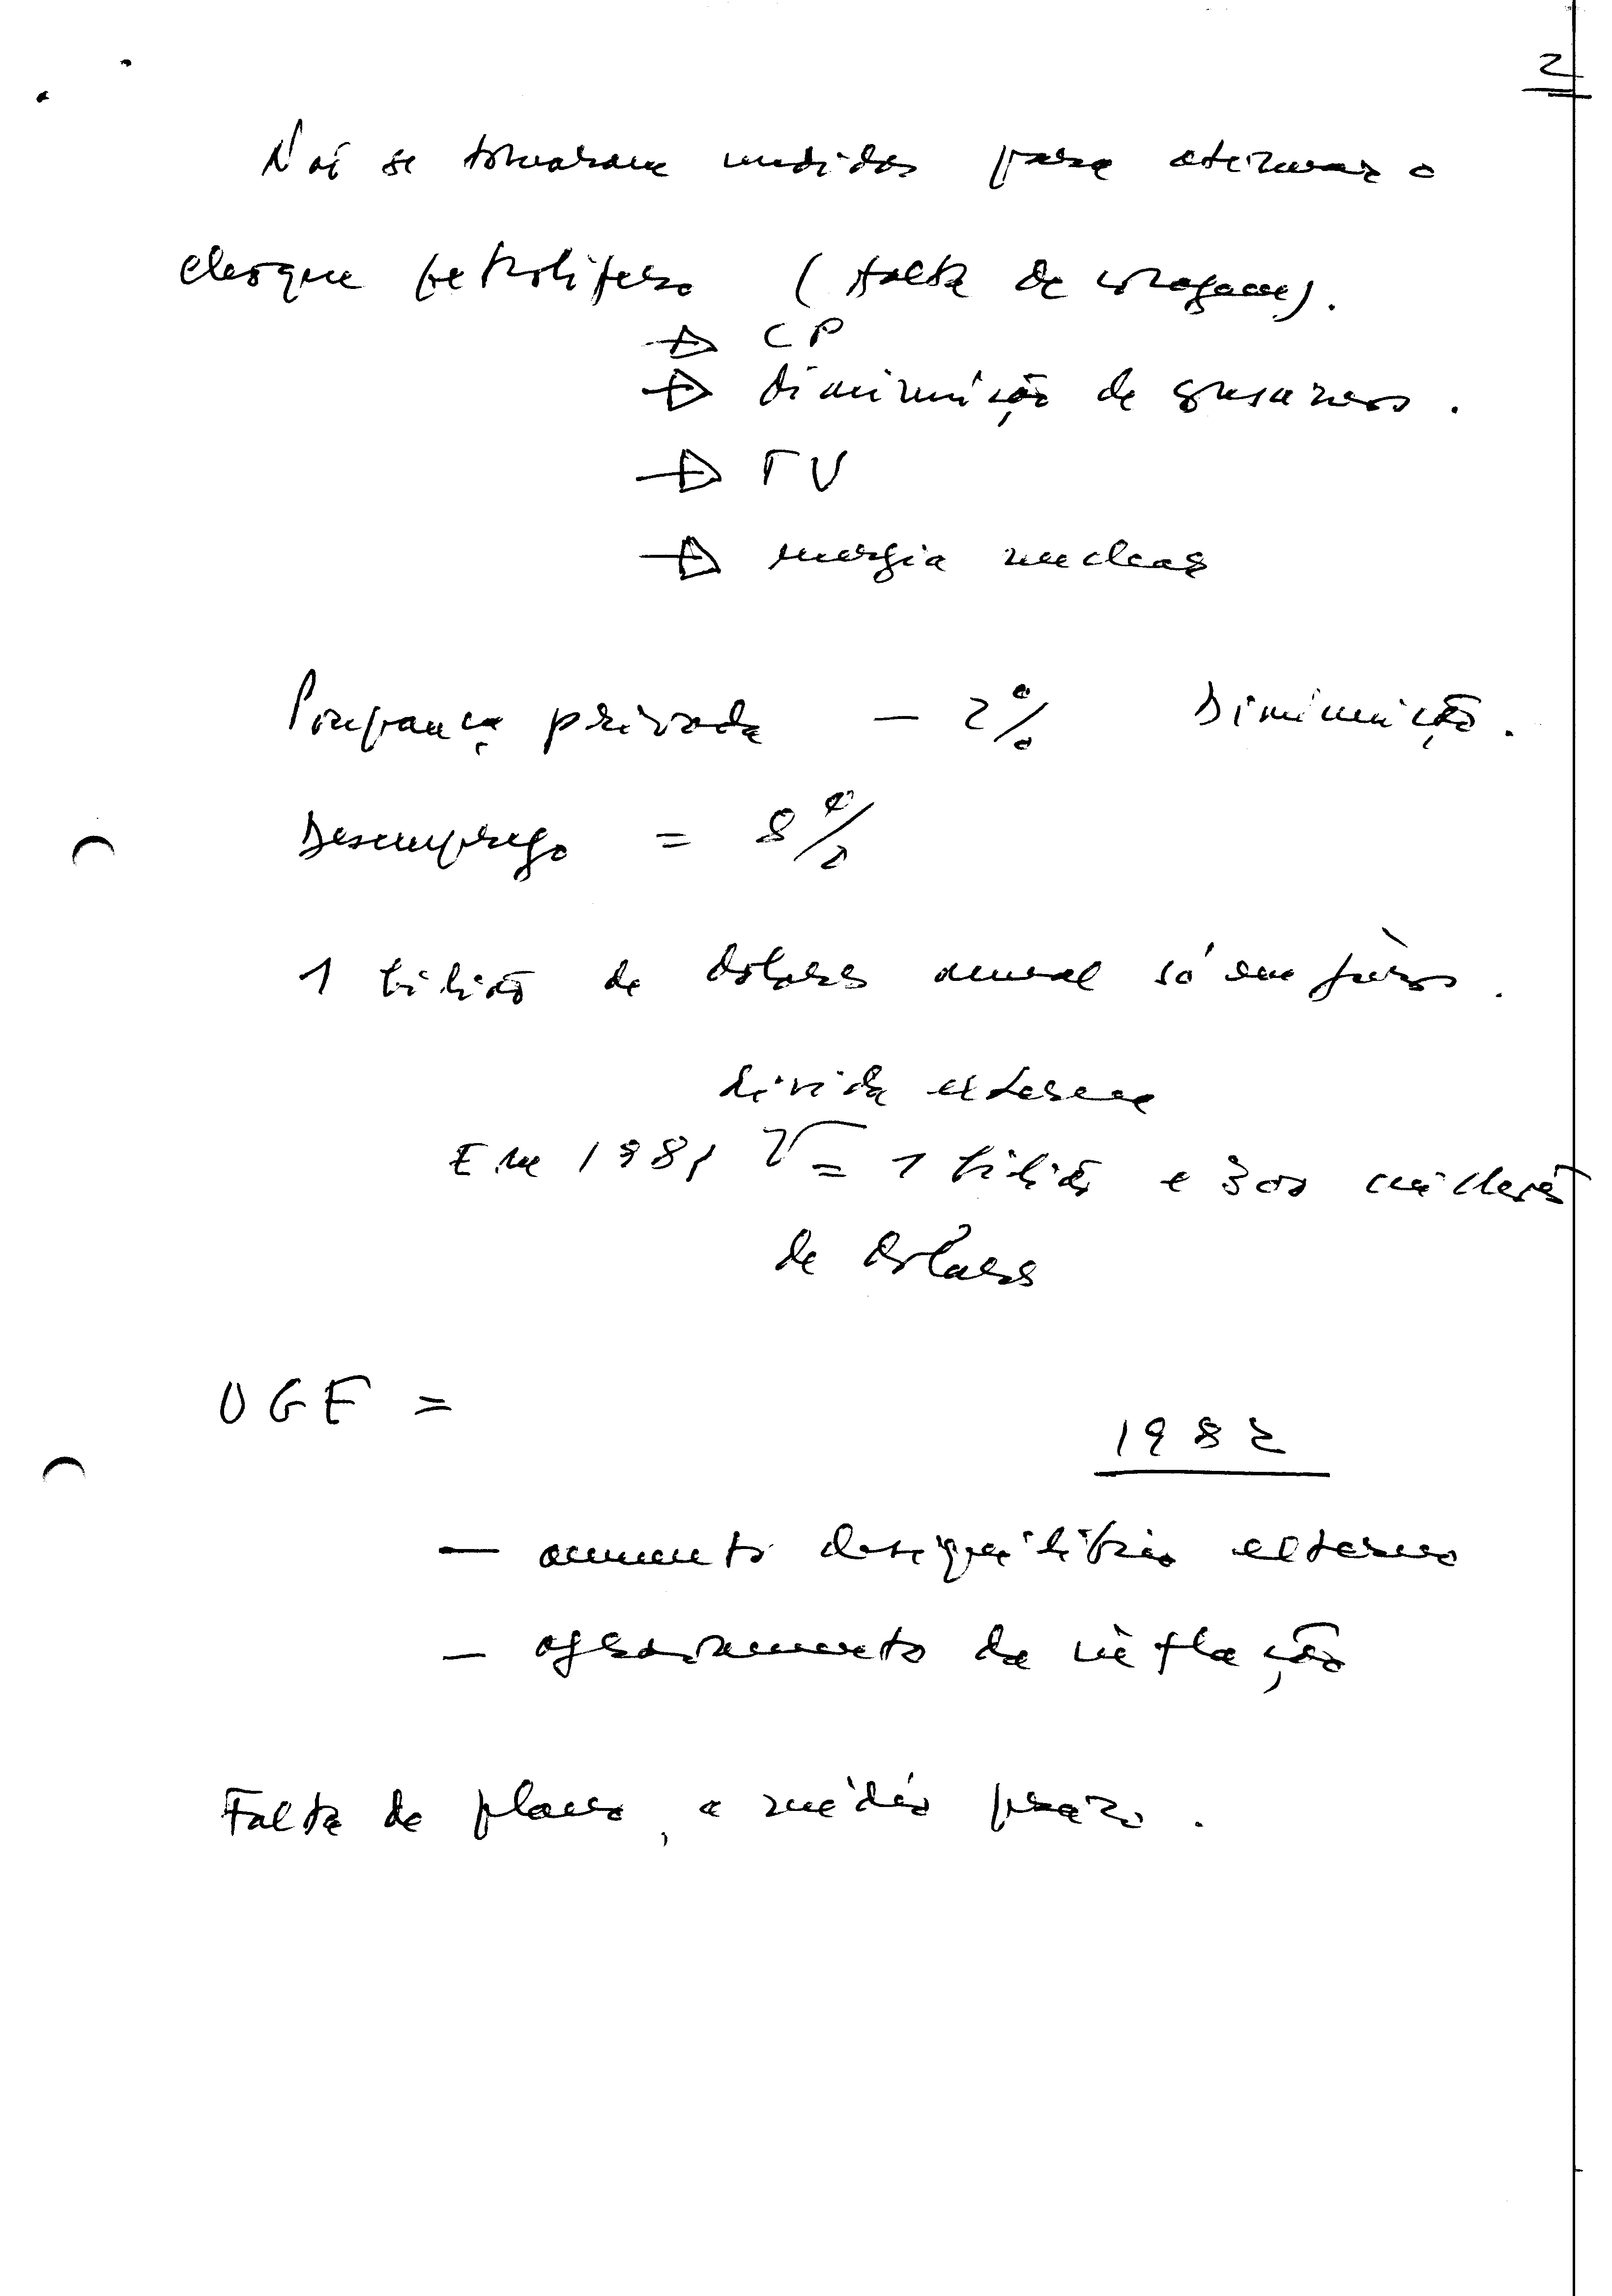 2
Não se tomaram medidas para atenuar o
choque petrolífero (falta de coragem).
→ CP
→ diminuição de
→ TV
→ energia nuclear
Poupança privada — 2% Diminuição.
Desemprego = 8%
1 bilião de dólares anual só em juros.
dívida externa
Em 1981 = 1 bilião e 300 milhões
de dólares
OGE =
1982
— aumento desiquilíbrio externo
— agravamento da inflação
Falta de plano, a médio prazo.